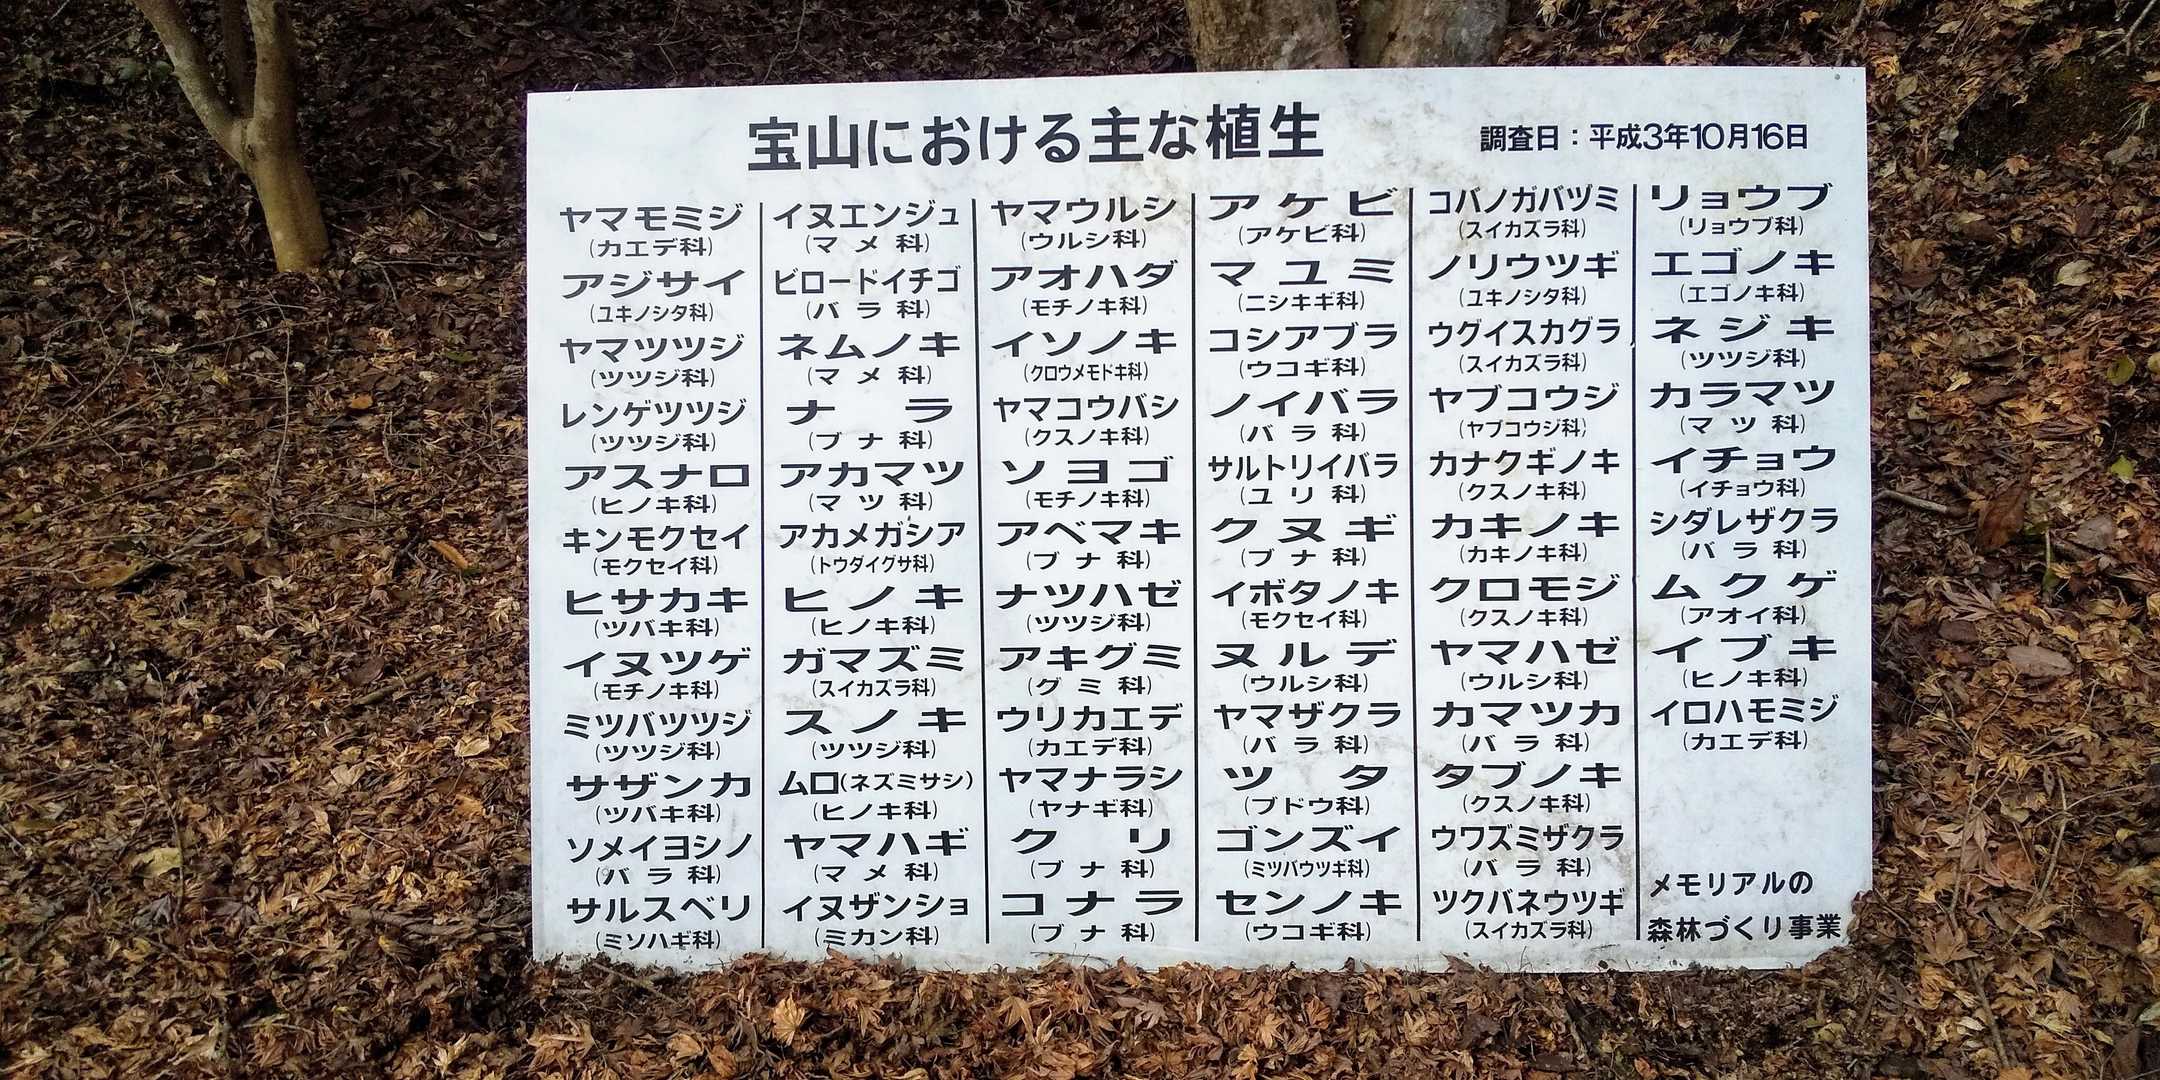 宝山における主な植生
調査日：平成3年10月16日
ヤマモミジ
(カエデ科)
アジサイ
(ユキノシタ科)
ヤマツツジ
(ツツジ科)
レンゲツツジ
(ツツジ科)
アスナロ
(ヒノキ科)
キンモクセイ
(モクセイ科)
ヒサカキ
(ツバキ科)
イヌツゲ
(モチノキ科)
ミツバツツジ
(ツツジ科)
サザンカ
(ツバキ科)
ソメイヨシノ
(バラ科)
サルスベリ
(ミソハギ科)
イヌエンジュ
(マメ科)
ビロードイチゴ
(バラ科)
ネムノキ
(マメ科)
ナラ
(ブナ科)
アカマツ
(マツ科)
アカメガシア
(トウダイグサ科)
ヒノキ
(ヒノキ科)
ガマズミ
(スイカズラ科)
スノキ
(ツツジ科)
ムロ(ネズミサシ)
(ヒノキ科)
ヤマハギ
(マメ科)
イヌザンショ
(ミカン科)
ヤマウルシ
(ウルシ科)
アオハダ
(モチノキ科)
イソノキ
(クロウメモドキ科)
ヤマコウバシ
(クスノキ科)
ソヨゴ
(モチノキ科)
アベマキ
(ブナ科)
ナツハゼ
(ツツジ科)
アキグミ
(グミ科)
ウリカエデ
(カエデ科)
ヤマナラシ
(ヤナギ科)
クリ
(ブナ科)
コナラ
(ブナ科)
アケビ
(アケビ科)
マユミ
(ニシキギ科)
コシアブラ
(ウコギ科)
ノイバラ
(バラ科)
サルトリイバラ
(ユリ科)
クヌギ
(ブナ科)
イボタノキ
(モクセイ科)
ヌルデ
(ウルシ科)
ヤマザクラ
(バラ科)
ツタ
(ブドウ科)
ゴンズイ
(ミツバウツギ科)
センノキ
(ウコギ科)
コバノガバヅミ
(スイカズラ科)
ノリウツギ
(ユキノシタ科)
ウグイスカグラ
(スイカズラ科)
ヤブコウジ
(ヤブコウジ科)
カナクギノキ
(クスノキ科)
カキノキ
(カキノキ科)
クロモジ
(クスノキ科)
ヤマハゼ
(ウルシ科)
カマツカ
(バラ科)
タブノキ
(クスノキ科)
ウワズミザクラ
(バラ科)
ツクバネウツギ
(スイカズラ科)
リョウブ
(リョウブ科)
エゴノキ
(エゴノキ科)
ネジキ
(ツツジ科)
カラマツ
(マツ科)
イチョウ
(イチョウ科)
シダレザクラ
(バラ科)
ムクゲ
(アオイ科)
イブキ
(ヒノキ科)
イロハモミジ
(カエデ科)
メモリアルの
森林づくり事業